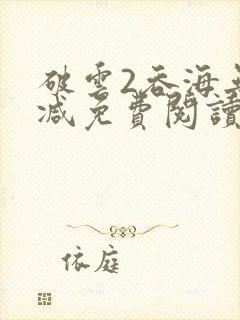 破雲2吞海無
減免費閱讀
依庭